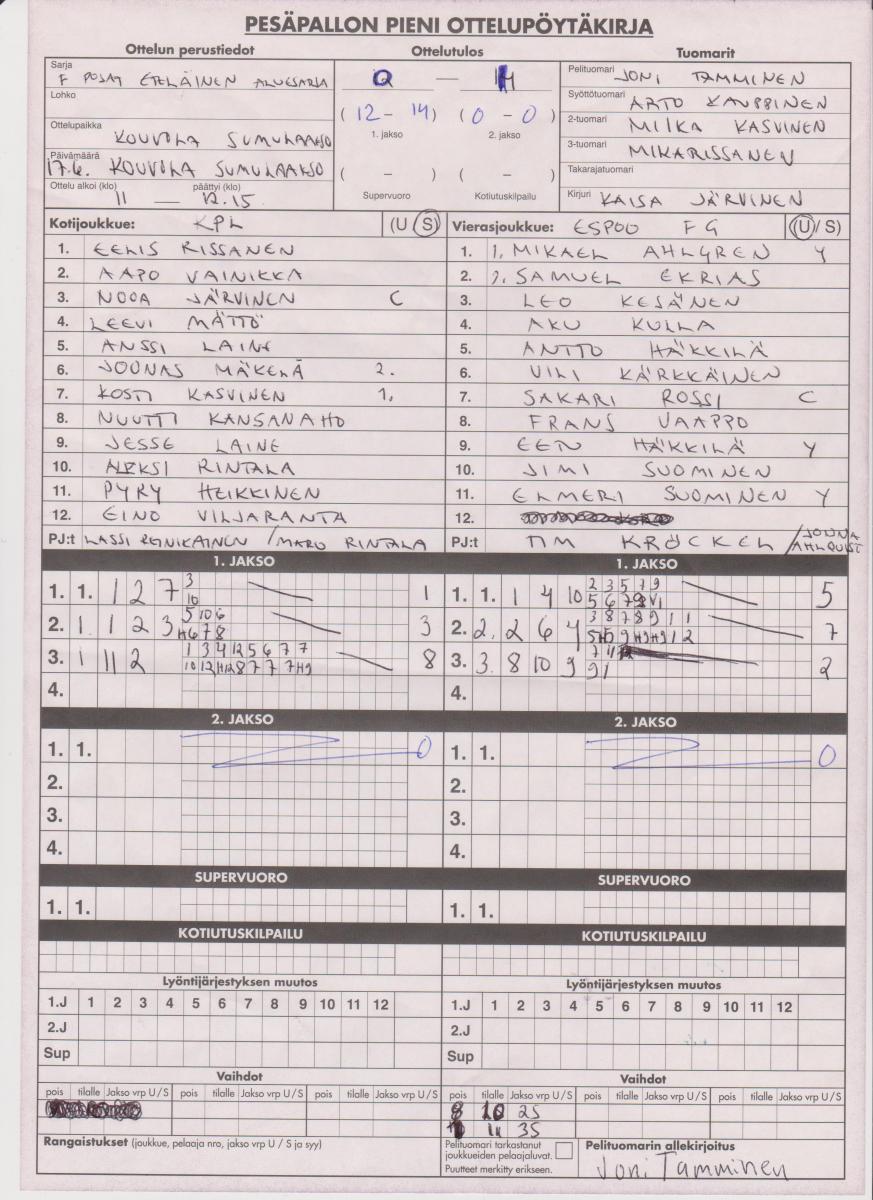 PESÄPALLON PIENI OTTELUPÖYTÄKIRJA
Ottelun perustiedot Ottelutulos Tuomarit
Sarja F POJAT ETELÄINEN ALUESARJA
Lohko
Ottelupaikka KOUVOLA SUMULAAKSO
Päivämäärä 17.6. KOUVOLA SUMULAAKSO
Ottelu alkoi (klo) 11 — päättyi (klo) 12.15
0 — 1
(12 – 14) (0 – 0)
1. jakso 2. jakso
( – ) ( – )
Supervuoro Kotiutuskilpailu
Pelituomari JONI TAMMINEN
Syöttötuomari ARTO KAUPPINEN
2-tuomari MIIKA KASVINEN
3-tuomari MIKA RISSANEN
Takarajatuomari
Kirjuri KAISA JÄRVINEN
Kotijoukkue: KPL (U / S)
1. EELIS RISSANEN
2. AAPO VAINIKKA
3. NOOA JÄRVINEN C
4. LEEVI MÄTTÖ
5. ANSSI LAINE
6. JOONAS MÄKELÄ 2.
7. KOSTI KASVINEN 1.
8. NUUTTI KANSANAHO
9. JESSE LAINE
10. ALEKSI RINTALA
11. PYRY HEIKKINEN
12. EINO VILJARANTA
PJ:t LASSI REINIKAINEN / MARO RINTALA
Vierasjoukkue: ESPOO FG (U / S)
1. 1. MIKAEL AHLGREN Y
2. 2. SAMUEL EKRIAS
3. LEO KESÄNEN
4. AKU KULLA
5. ANTTO HÄKKILÄ
6. VILI KÄRKKÄINEN
7. SAKARI ROSSI C
8. FRANS VAAPPO
9. EETU HÄKKILÄ Y
10. JIMI SUOMINEN
11. ELMERI SUOMINEN Y
12.
PJ:t TIM KRÖCKEL / JONNA AHLQVIST
1. JAKSO
1. 1. 1 2 7 3 10 1
2. 1 1 2 3 5 10 6 H6 7 8 3
3. 1 11 2 1 3 4 12 5 6 7 7 10 12 H12 8 7 7 7 H9 8
4.
1. JAKSO
1. 1. 1 4 10 2 3 5 7 9 5 6 7 5
2. 2. 2 6 4 3 8 7 8 9 1 1 9 H9 H9 1 2 7
3. 3. 8 10 9 7 9 1 2
4.
2. JAKSO
1. 1. 0
2.
3.
4.
2. JAKSO
1. 1. 0
2.
3.
4.
SUPERVUORO
1. 1.
SUPERVUORO
1. 1.
KOTIUTUSKILPAILU
KOTIUTUSKILPAILU
Lyöntijärjestyksen muutos
1.J 1 2 3 4 5 6 7 8 9 10 11 12
2.J
Sup
Lyöntijärjestyksen muutos
1.J 1 2 3 4 5 6 7 8 9 10 11 12
2.J
Sup
Vaihdot
pois tilalle Jakso vrp U / S pois tilalle Jakso vrp U / S pois tilalle Jakso vrp U / S
Vaihdot
pois tilalle Jakso vrp U / S pois tilalle Jakso vrp U / S pois tilalle Jakso vrp U / S
8 10 2S
11 3S
Rangaistukset (joukkue, pelaaja nro, jakso vrp U / S ja syy)
Pelituomari tarkastanut
joukkueiden pelaajaluvat.
Puutteet merkitty erikseen.
Pelituomarin allekirjoitus
Joni Tamminen